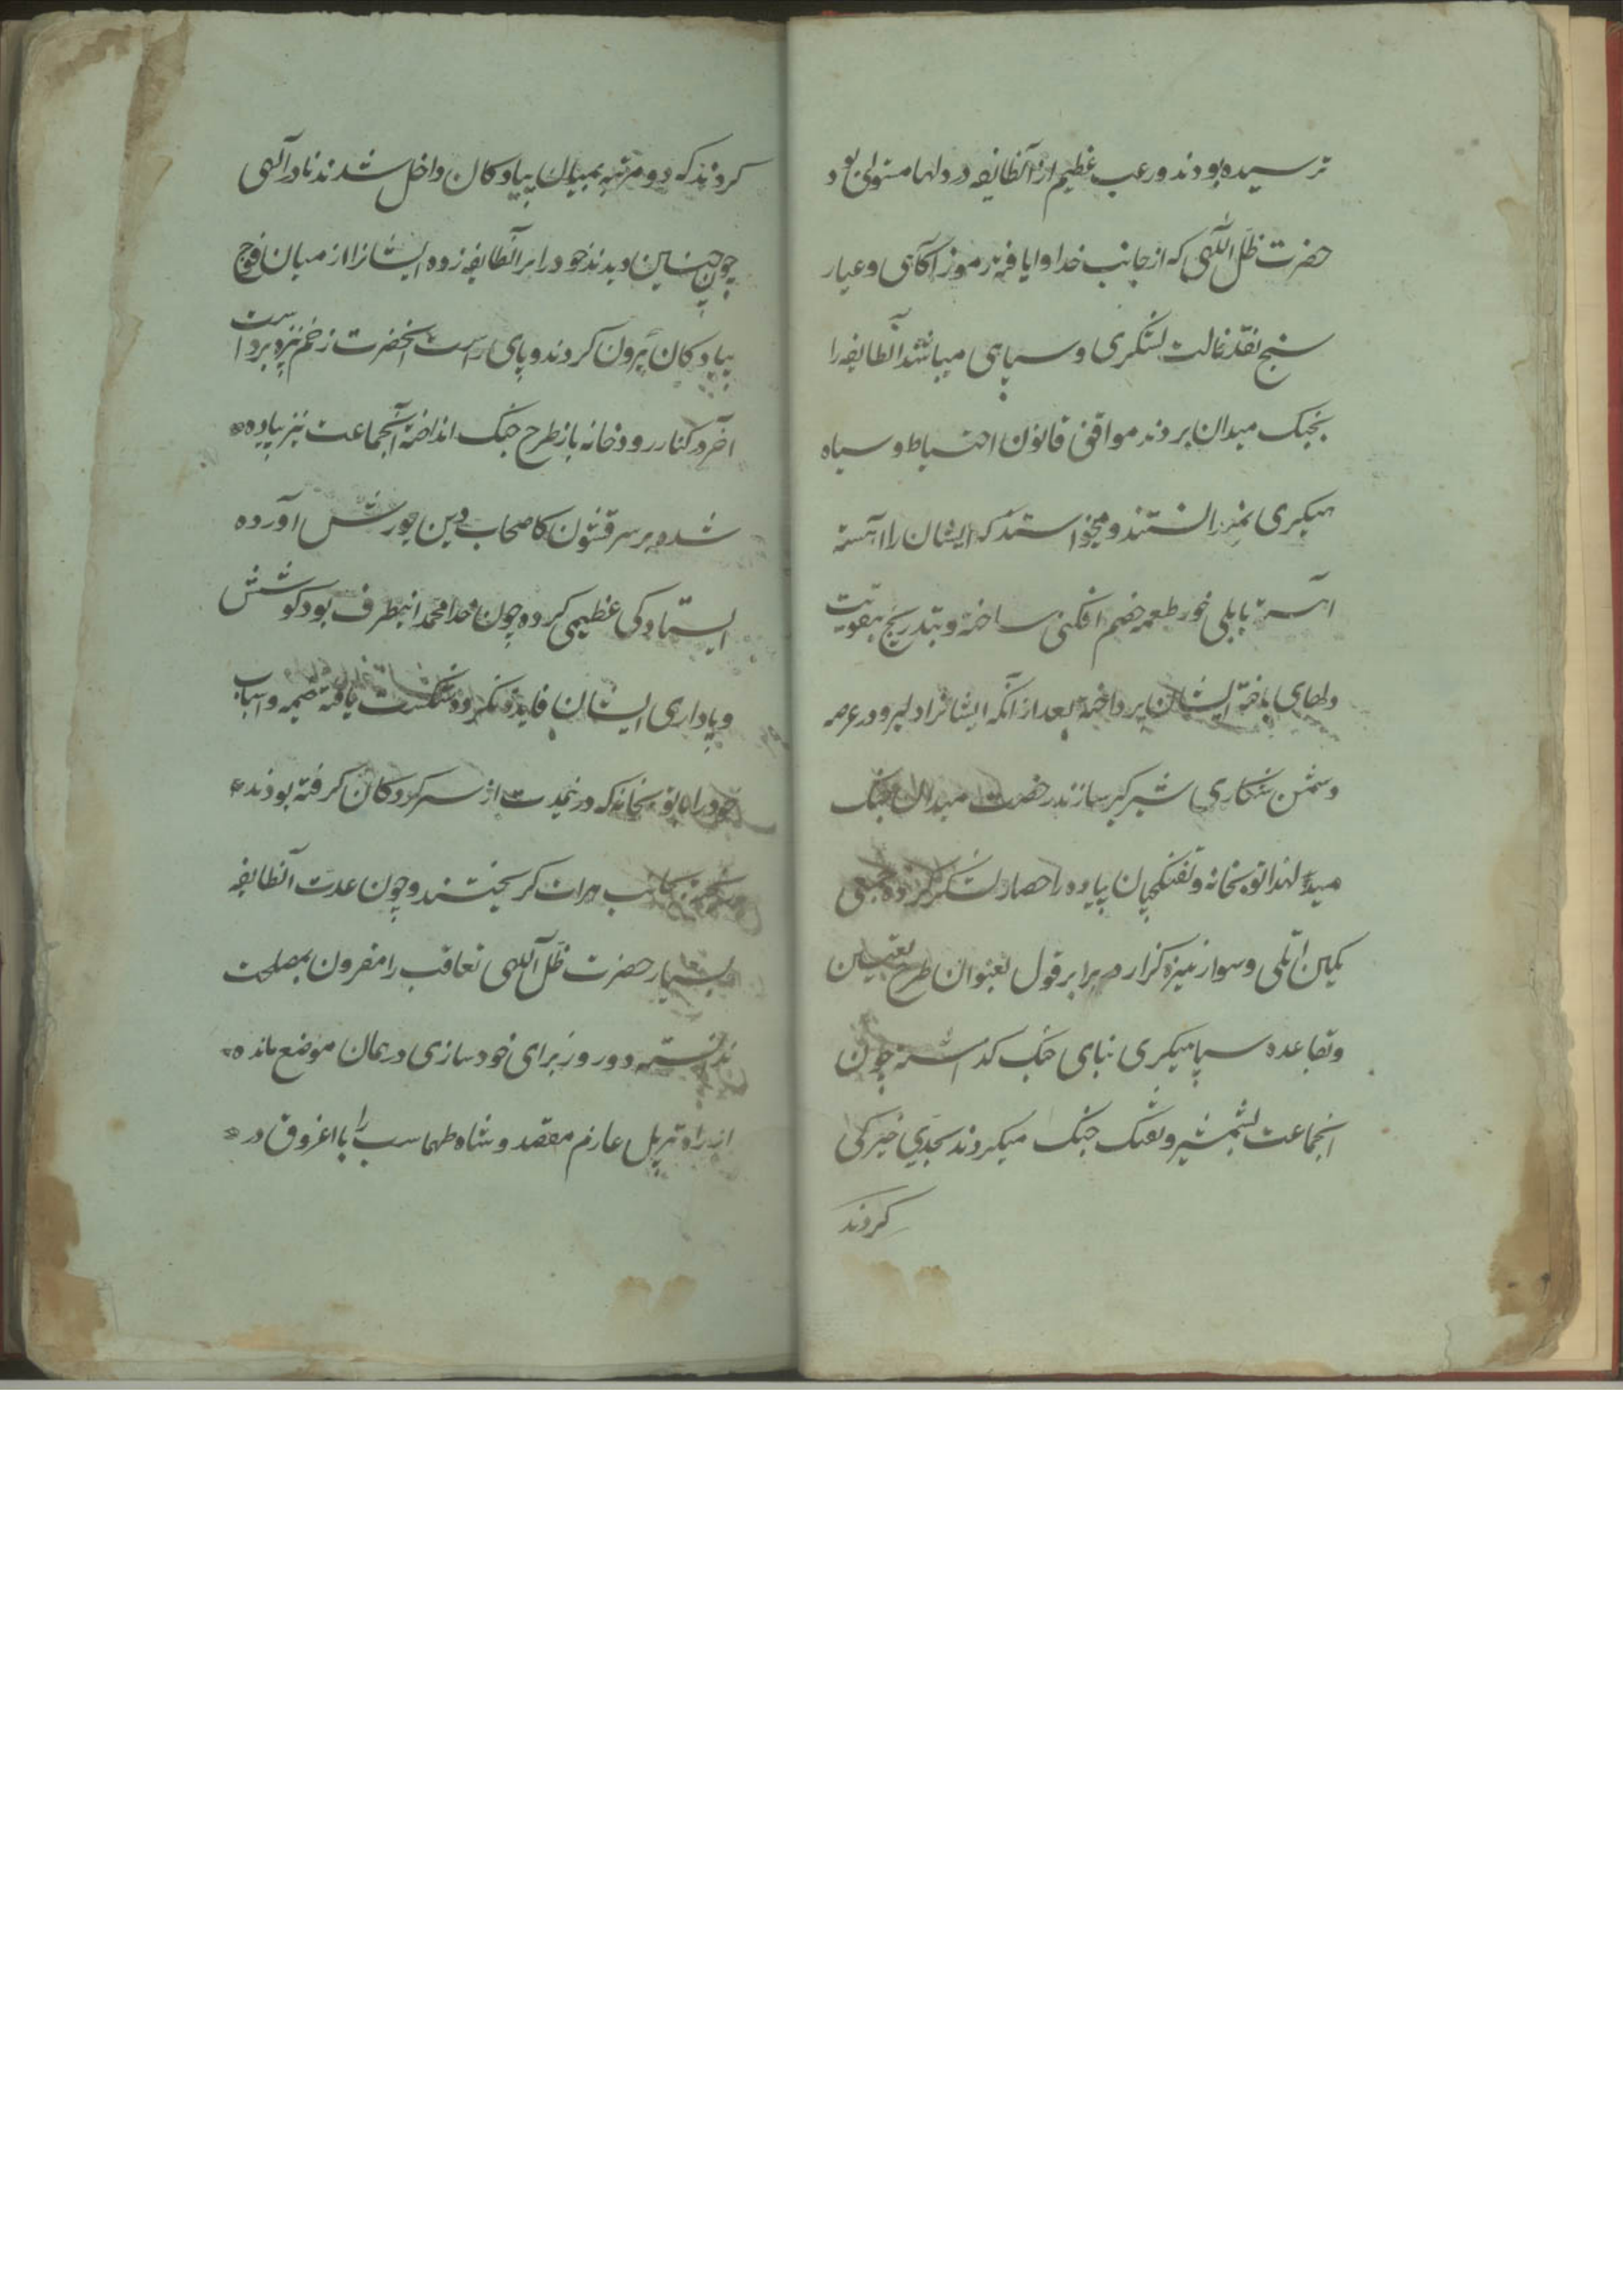 ترسیده بودند و رعب عظیم از آنطایفه در دلها مستولی بود
حضرت ظل اللهی که از جانب خدا و ایافه رموز آگاهی و عیار
سنج نقد حالت لشکری و سپاهی میباشد آنطایفه را
بجنک میدان بردند موافق قانون احتیاط و سپاه
هیکری نمیدانستند و میخواستند که ایشان را آهسته
آهسته بابلی خور طعمه خصم افکنی ساخته و بتدریج بتقویت
دلهای باخته ایشان پرداخته بعد از آنکه ایشانرا دلیر و در عرصه
دشمن شکاری شیرکیر سازند رخصت میدان جنک
میداد لهذا توپخانه و تفنکچیان پیاده را حصار لشکر کرده جمعی
یکین اتلی و سوار نیزه کزار در برابر قول بعنوان طرح تعیین
و بقاعده سپاهیکری بنای جنک کذاشته چون
انجماعت بشمشیر و تفنک جنک میکردند بجدی خیرکی
کردند
کردند که دو مرتبه بمیان پیادکان داخل شدند نادرآلهی
چون چنین دیدند خود را بر آنطایفه زده ایشانرا از میان فوج
پیادکان بیرون کردند و پای راست آنحضرت زخم نیزه برداشت
آخر در کنار رودخانه باز طرح جنک انداخته آنجماعت نیز پیاده
شده بر سر قشون کاصحاب دین یورش آورده
ایستادکی عظیمی کرده چون خدا محمد اینطرف بود کوشش
و پاداری ایشان فایده نکرده شکست یافته خیمه و اسباب
خود را با توپخانه که در نمدت از سرکردکان کرفته بودند
ریخته بجانب هرات کریختند و چون عدت آنطایفه
بسیار حضرت ظل آللهی تعاقب را مقرون بمصلحت
ندانسته دو روز برای خودسازی در همان موضع مانده
از راه تیرپل عازم مقصد و شاه طهماسب را با اغروق در